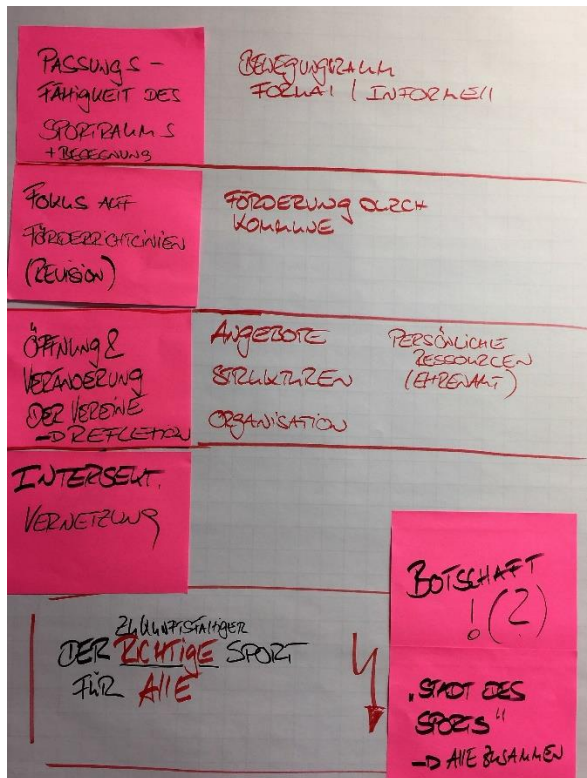 PASSUNGS-
FÄHIGKEIT DES
SPORTRAUMS
+ BEGEGNUNG
BEWEGUNGSRAUM
FORMAL / INFORMELL
FOKUS AUF
FÖRDERRICHTLINIEN
(REVISION)
FÖRDERUNG DURCH
KOMMUNE
ÖFFNUNG &
VERÄNDERUNG
DER VEREINE
→ REFLEKTION
ANGEBOTE
STRUKTUREN
ORGANISATION
PERSÖNLICHE
RESSOURCEN
(EHRENAMT)
INTERSEKT.
VERNETZUNG
ZUKUNFTSFÄHIGER
DER RICHTIGE SPORT
FÜR ALLE
BOTSCHAFT
! (?)
„STADT DES
SPORTS"
→ ALLE ZUSAMMEN